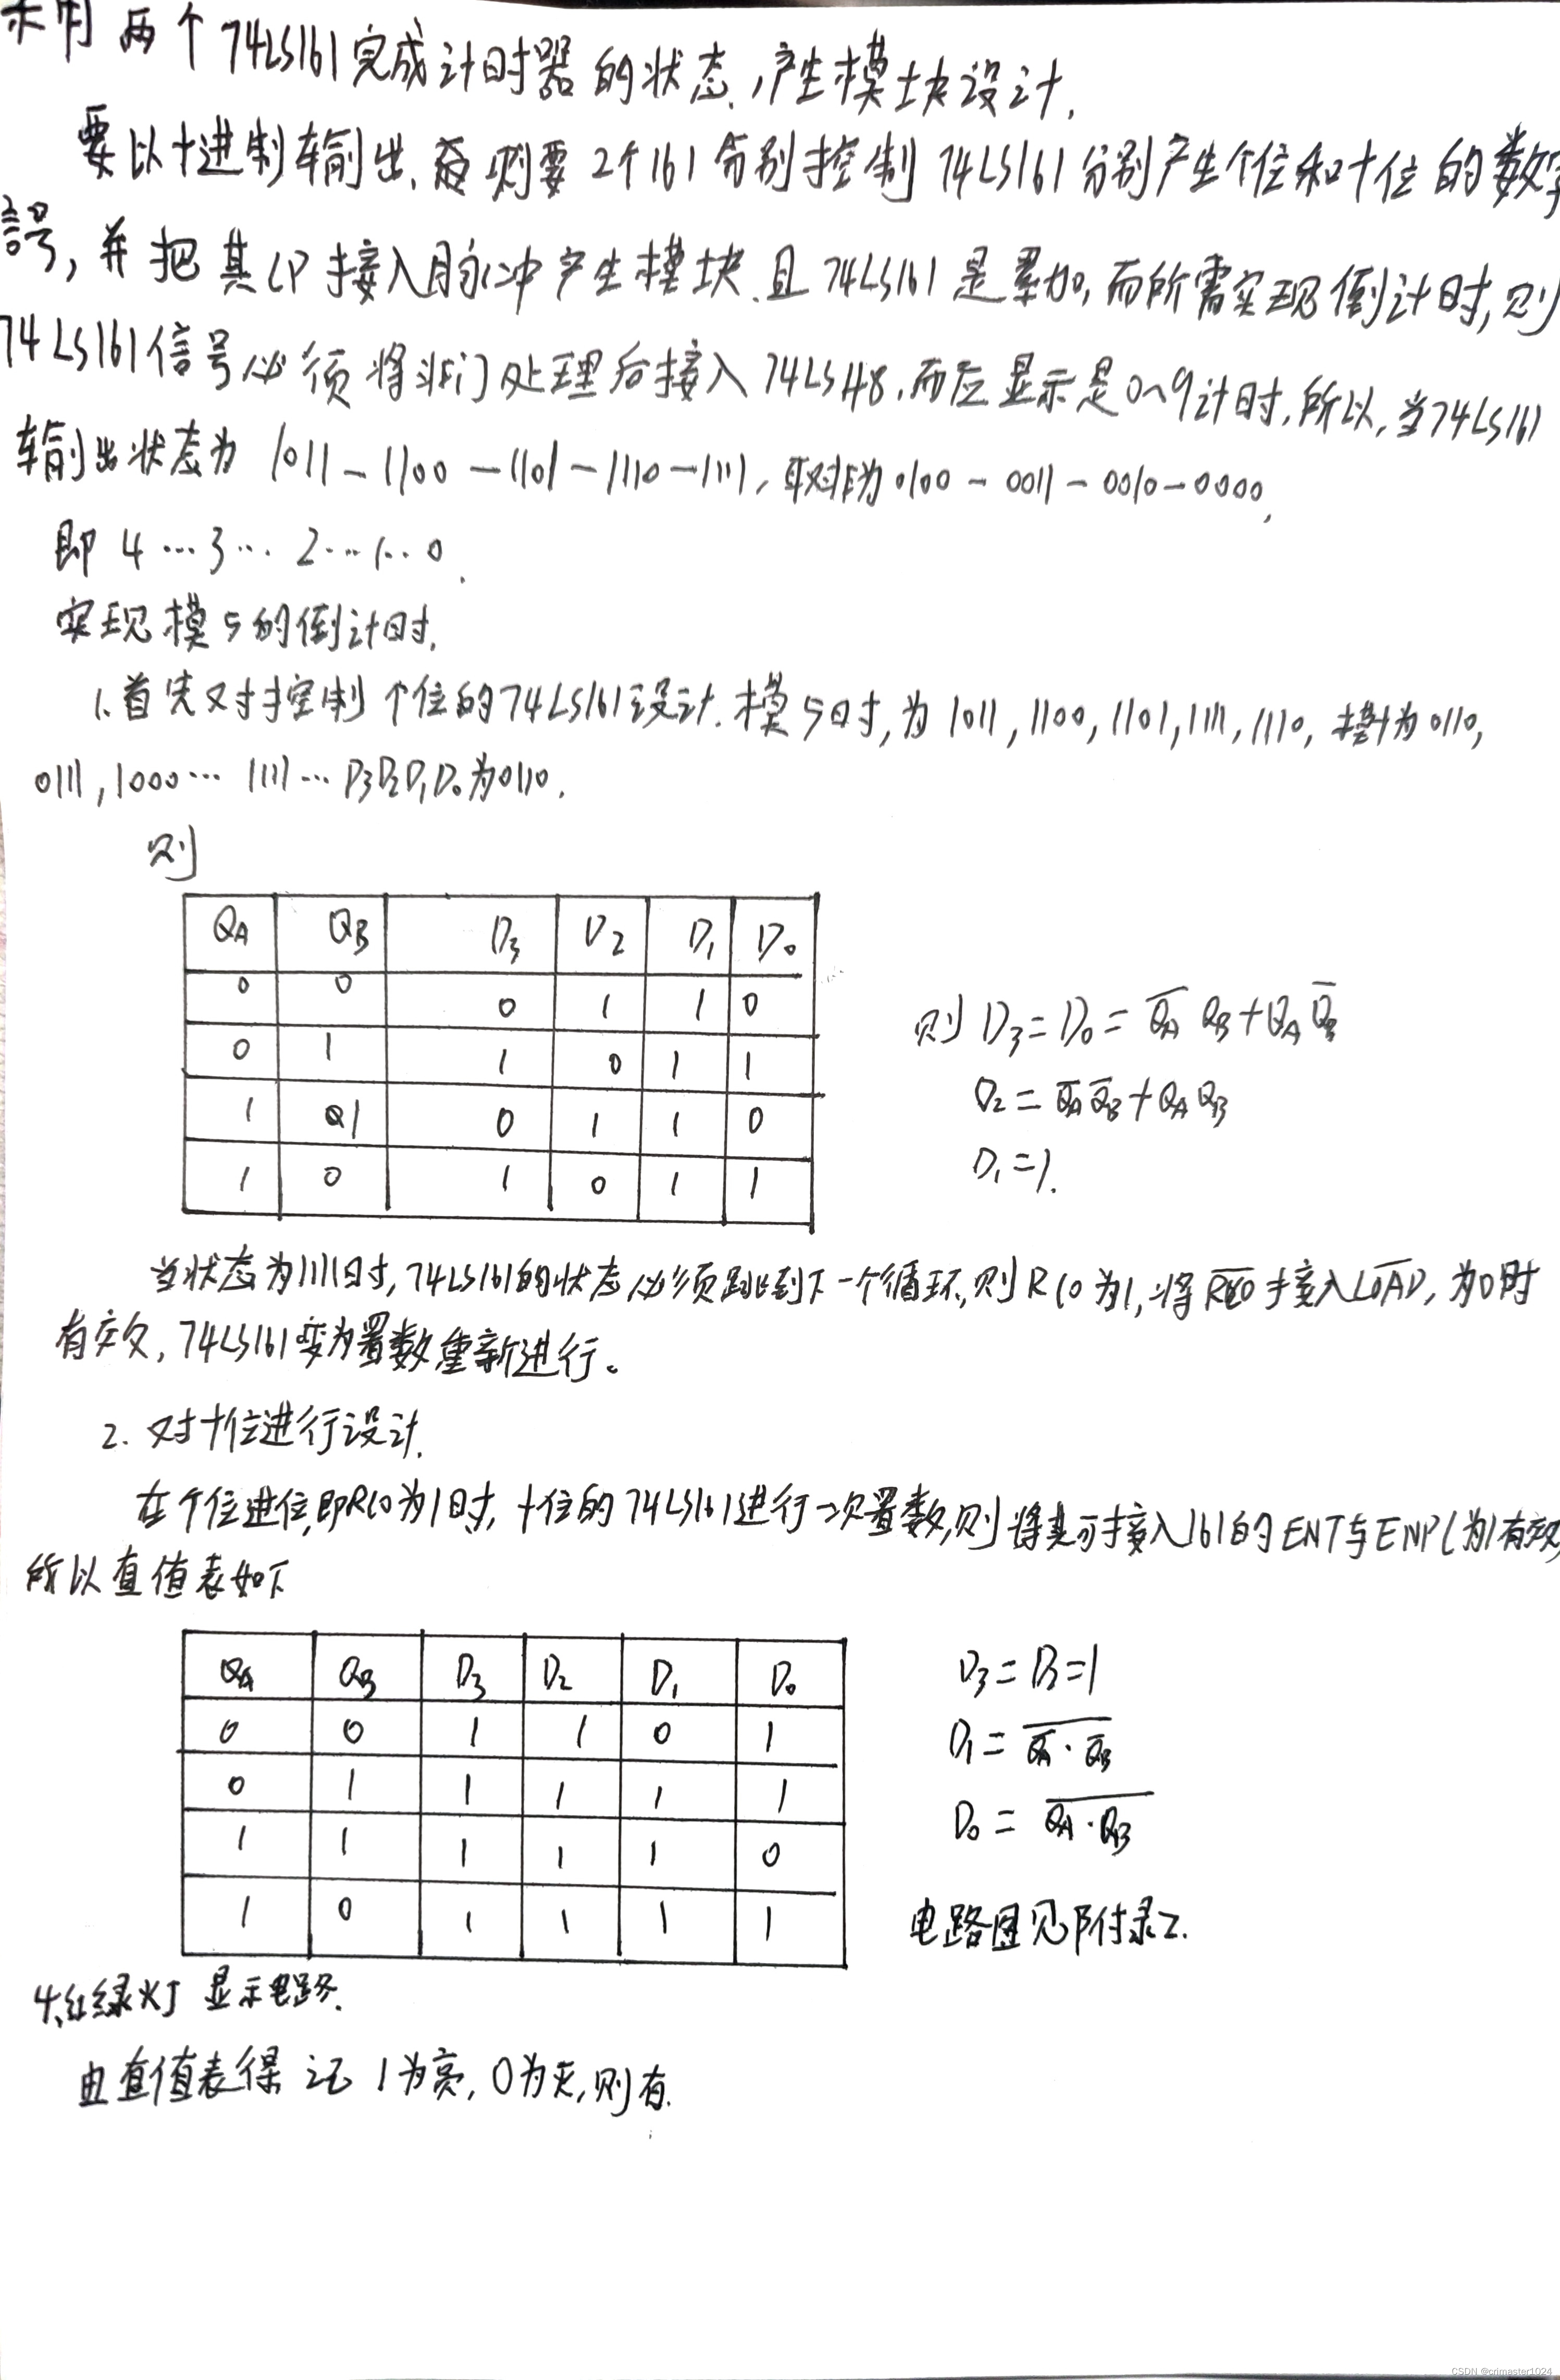 两个74LS161完成计时器的状态,产生模块设计.
要以十进制输出,则要2个161分别控制74LS161分别产生个位和十位的数字
号,并把其CP接入脉冲产生模块.且74LS161是累加,而所需实现倒计时,则
74LS161信号必须将非门处理后接入74LS48.而应显示是0~9计时,所以,当74LS161
输出状态为1011-1100-1101-1110-1111,取非为0100-0011-0010-0000,
即4…3…2…1..0.
实现模5的倒计时.
1.首先对控制个位的74LS161设计.模5时,为1011,1100,1101,1111,1110,模十为0110,
0111,1000…1111…D3D2D1D0为0110.
则
QA QB D3 D2 D1 D0
0 0 0 1 1 0
0 1 1 0 1 1
1 1 0 1 1 0
1 0 1 0 1 1
则D3=D0=Q̅A̅ QB+QA Q̅B̅
D2=Q̅A̅ Q̅B̅+QA QB
D1=1.
当状态为1111时,74LS161的状态必须跳到下一个循环,则RCO为1,将R̅C̅O̅接入L̅O̅A̅D̅,为0时
有效,74LS161变为置数重新进行。
2.对十位进行设计.
在个位进位,即RCO为1时,十位的74LS161进行一次置数,则将其可接入161的ENT与ENP(为1有效,
所以真值表如下
QA QB D3 D2 D1 D0
0 0 1 1 0 1
0 1 1 1 1 1
1 1 1 1 1 0
1 0 1 1 1 1
D3=D=1
D1=\overline{Q̅A̅·Q̅B̅}
D0=\overline{QA·QB}
电路图见附录2.
4、红绿灯显示电路.
由真值表得 记1为亮,0为灭,则有.
CSDN @crimaster1024